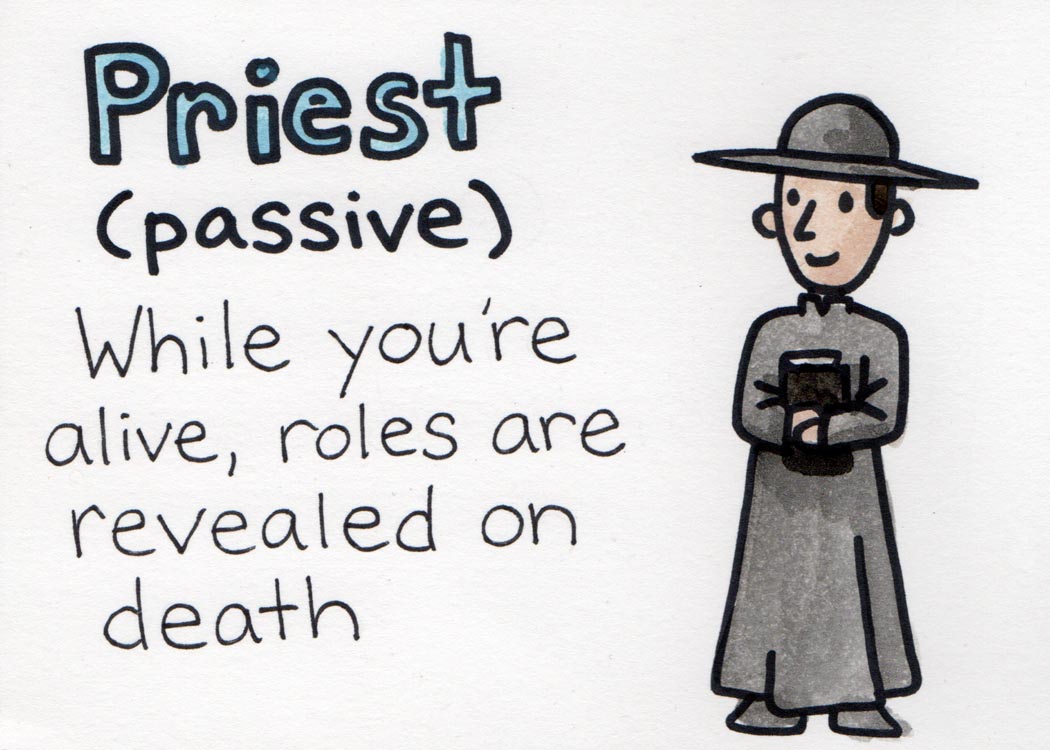 Priest
(passive)
While you're
alive, roles are
revealed on
death